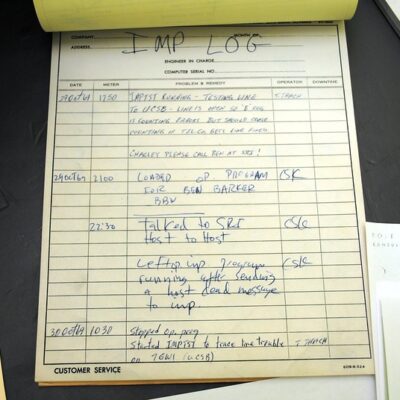 COMPANY
MONTH OF
ADDRESS
IMP LOG
ENGINEER IN CHARGE
COMPUTER SERIAL NO.
DATE METER PROBLEM & REMEDY OPERATOR DOWNTIME
29Oct69 1750 IMPTST RUNNING - TESTING LINE T THACH
TO UCSB - LINE IS OPEN SO E REG
IS COUNTING ERRORS BUT SHOULD STOP
COUNTING IF TELCO GETS LINE FIXED
CHARLEY PLEASE CALL BEN AT SRI!
29Oct69 2100 LOADED OP. PROGRAM CSK
FOR BEN BARKER
BBV
22:30 Talked to SRI CSK
Host to Host
Left op. imp program CSK
running after sending
a host dead message
to imp.
30Oct69 1038 Stopped op. prog
Started IMPTST to trace line trouble T THACH
on (UCSB)
CUSTOMER SERVICE